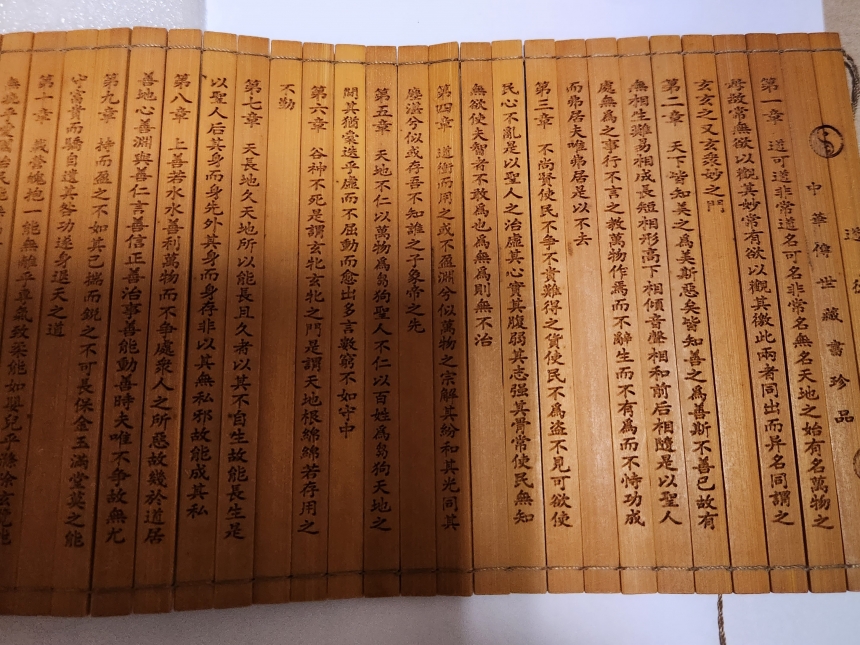 道德
中華傳世藏書珍品
第一章 道可道非常道名可名非常名無名天地之始有名萬物之
母故常無欲以觀其妙常有欲以觀其徼此兩者同出而异名同謂之
玄玄之又玄衆妙之門
第二章 天下皆知美之為美斯惡矣皆知善之為善斯不善已故有
無相生難易相成長短相形高下相傾音聲相和前后相隨是以聖人
處無為之事行不言之教萬物作焉而不辭生而不有為而不恃功成
而弗居夫唯弗居是以不去
第三章 不尚賢使民不爭不貴難得之貨使民不為盜不見可欲使
民心不亂是以聖人之治虛其心實其腹弱其志强其骨常使民無知
無欲使夫智者不敢為也為無為則無不治
第四章 道衝而用之或不盈淵兮似萬物之宗解其紛和其光同其
塵湛兮似或存吾不知誰之子象帝之先
第五章 天地不仁以萬物為芻狗聖人不仁以百姓為芻狗天地之
間其猶橐迭乎虛而不屈動而愈出多言數窮不如守中
第六章 谷神不死是謂玄牝玄牝之門是謂天地根綿綿若存用之
不勤
第七章 天長地久天地所以能長且久者以其不自生故能長生是
以聖人后其身而身先外其身而身存非以其無私邪故能成其私
第八章 上善若水水善利萬物而不爭處衆人之所惡故幾於道居
善地心善淵與善仁言善信正善治事善能動善時夫唯不爭故無尤
第九章 持而盈之不如其已揣而銳之不可長保金玉滿堂莫之能
守富貴而驕自遺其咎功遂身退天之道
第十章 載營魄抱一能無離乎專氣致柔能如嬰兒乎滌除玄覽能
無疵乎愛國治民能無